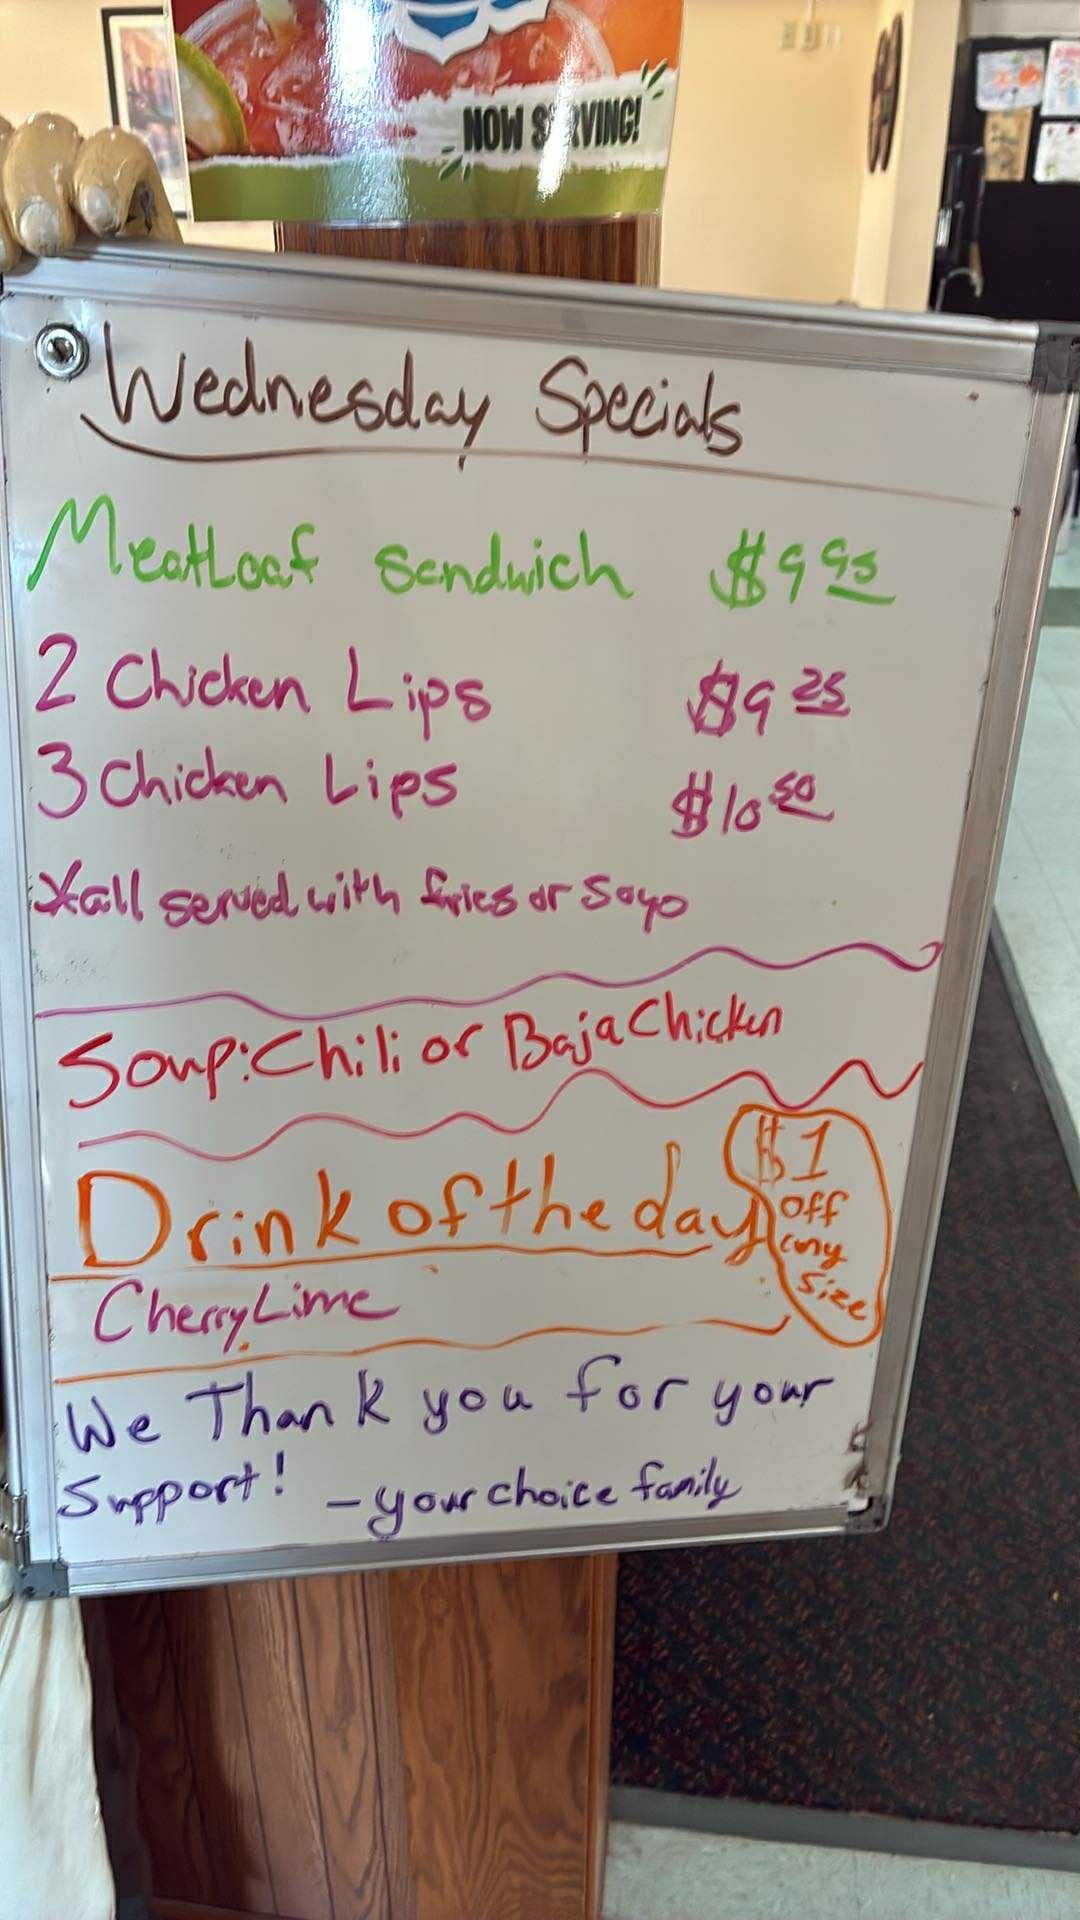 NOW SERVING!
Wednesday Specials
MeatLoaf Sandwich $9 95
2 Chicken Lips $9 25
3 Chicken Lips $10 50
*all served with fries or Soyo
Soup: Chili or Baja Chicken
Drink of the day $1 off any size
Cherry Lime
We Thank you for your
Support! - your choice family